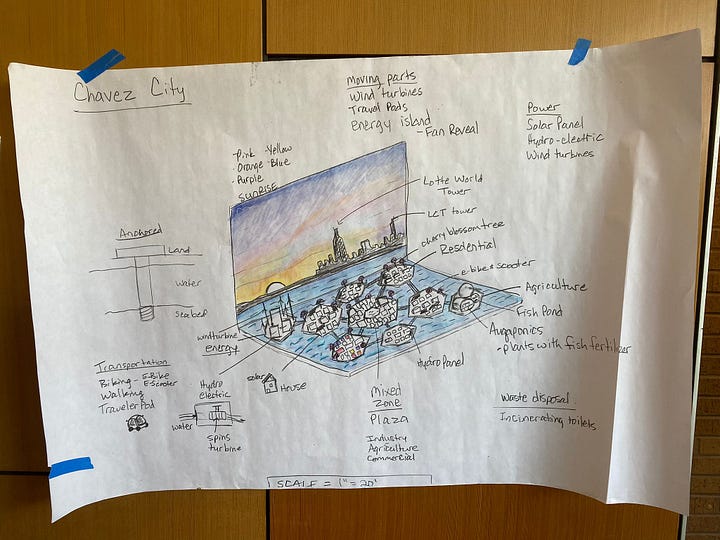 Chavez City
Moving parts
Wind turbines
Travel Pods
energy island
- Fan Reveal
Power
Solar Panel
Hydro-electric
Wind turbines
- Pink - Yellow
- Orange - Blue
- Purple
SunRISE
Lotte World
Tower
LCT tower
cherry blossom tree
Residential
e-bike & scooter
Agriculture
Fish Pond
Auqaponics
- plants with fish fertilizer
Anchored
Land
water
seabed
windturbine
energy
Transportation
Biking - E-Bike
E-Scooter
Walking
TravelerPod
Hydro
electric
water
spins
turbine
solar
House
Mixed
Zone
Plaza
Industry
Agriculture
Commercial
Hydro Panel
Waste disposal
Incinerating toilets
SCALE = 1" = 20'